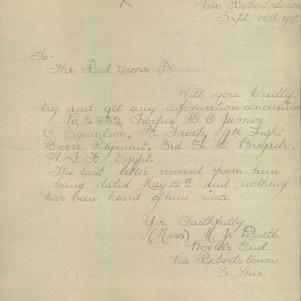 Via Robertstown
Sept. 15th 191
To-
The Red Cross Bureau
Will you kindly
try and get any information concerning
No, 2552, Trooper James
C Squadron, Troop, 9th Light
Horse Regiment, 3rd L. H. Brigade,
A. I. F. Egypt.
The last letter received from him
being dated May 12th and nothing
has been heard of him since.
Yrs. Faithfully
(Miss) M. J.
End
Via Robertstown
S. Aus.